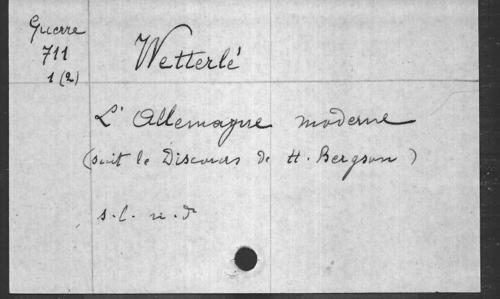 Guerre
711
1 (2)
Wetterlé
L'Allemagne moderne
(suit le Discours de H. Bergson)
s. l. n. d